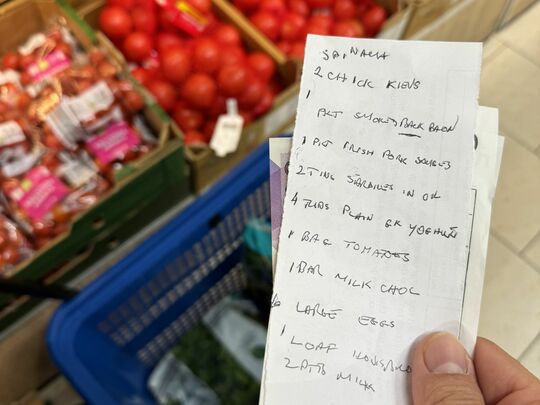 SPINACH
2 CHICK KIEVS
1
PKT SMOKED BACK BACON
1 PKT IRISH PORK SAUSAGES
2 TINS SARDINES IN OIL
4 TUBS PLAIN GK YOGHURT
1 BAG TOMATOES
1 BAR MILK CHOC
6 LARGE EGGS
1
LOAF
2 MILK